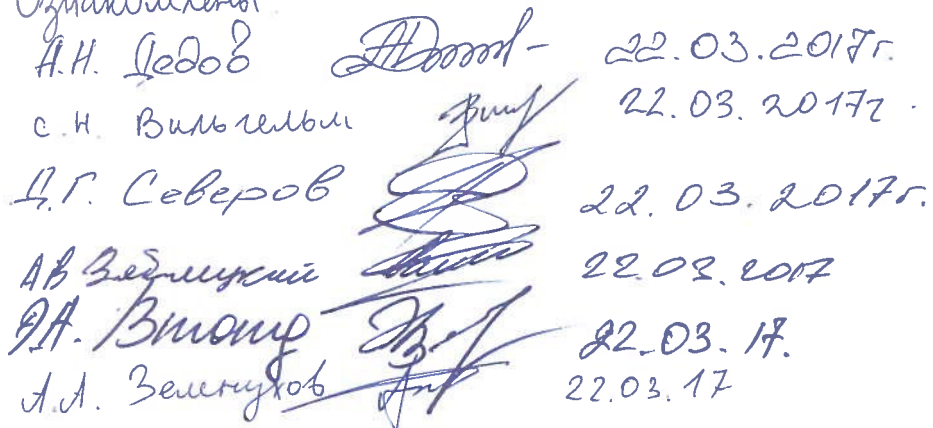 Ознакомлены
А.Н. Дедов 22.03.2017г.
С.Н Вильгельм 22.03.2017г.
Д.Г. Северов 22.03.2017г.
АВ 22.03.2017
22.03.17.
А.А. Зеленухов 22.03.17